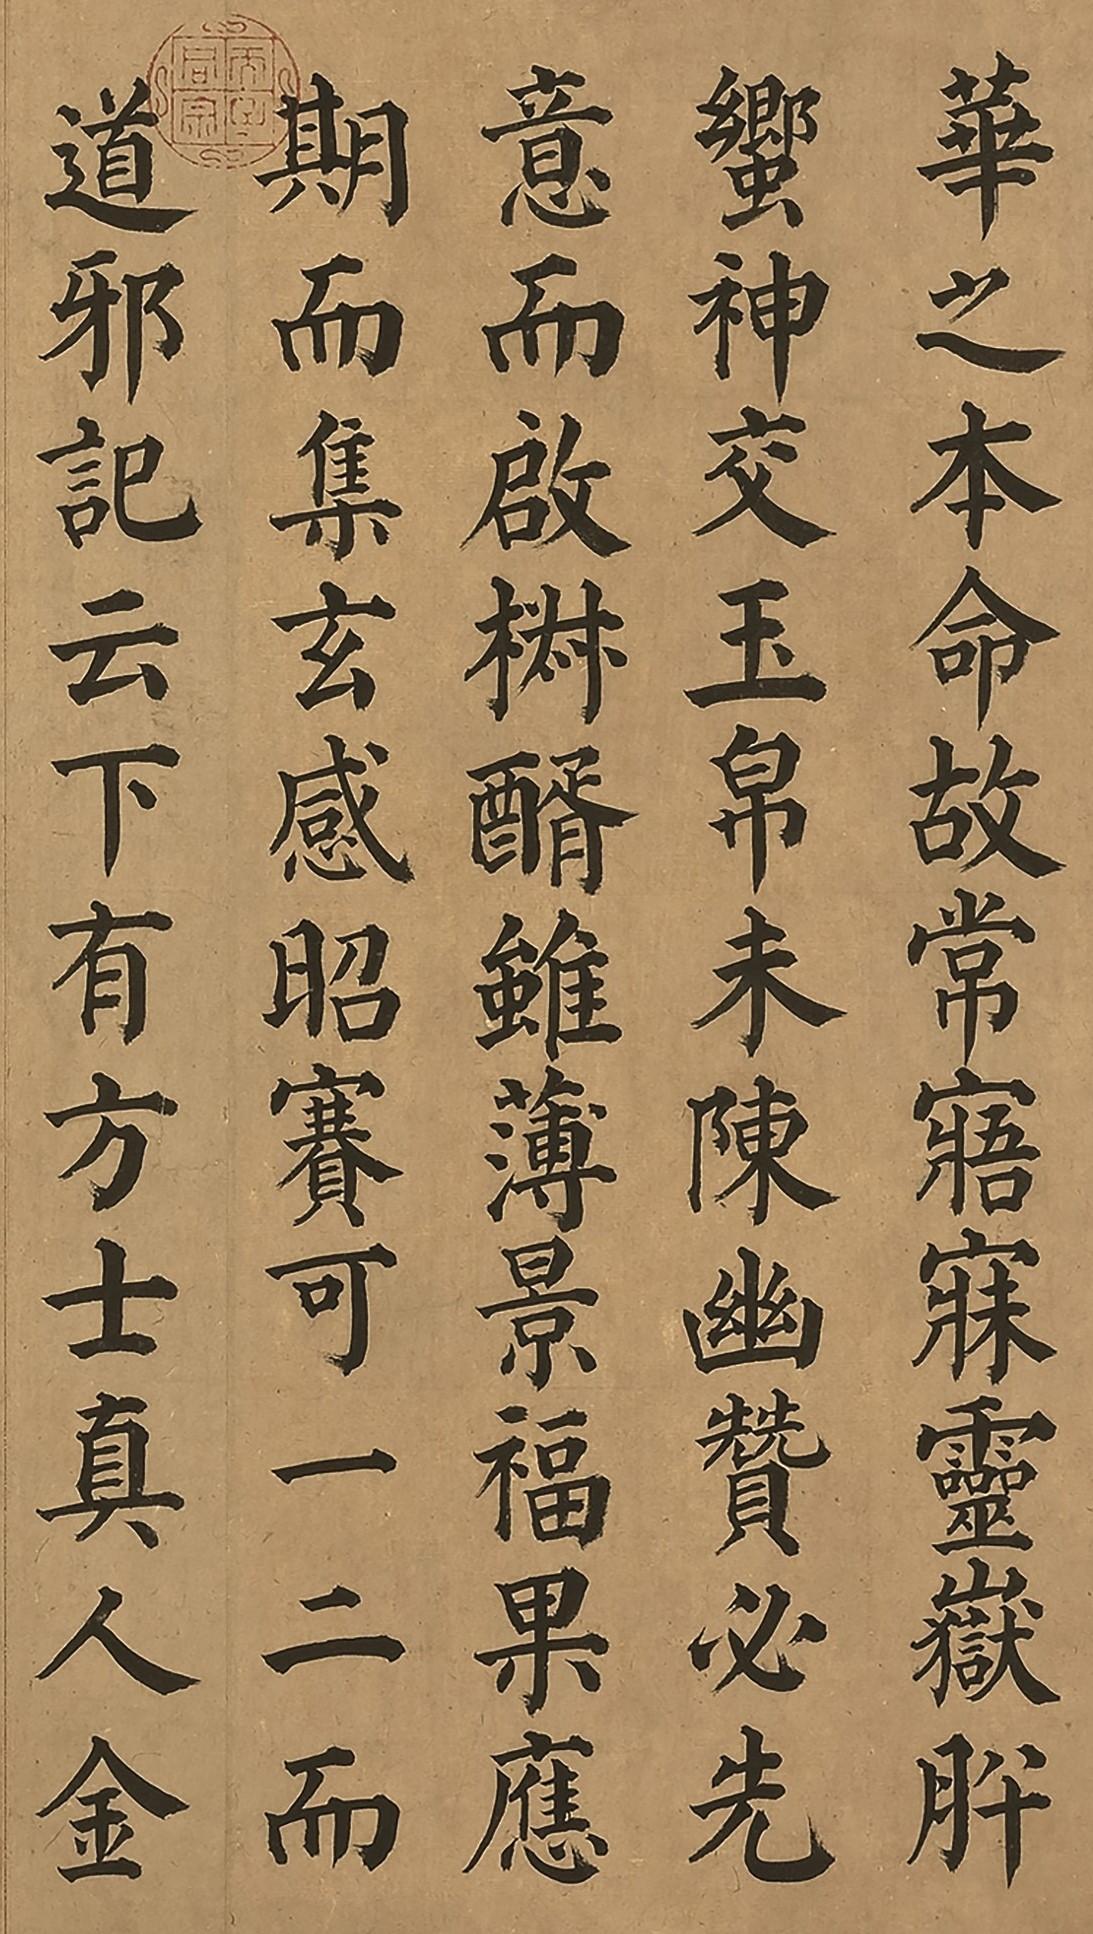 華之本命故常寤寐靈嶽肸
蠁神交玉帛未陳幽贊必先
意而啟椒醑雖薄景福果應
期而集玄感昭賽可一二而
道邪記云下有方士真人金